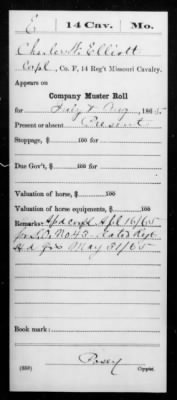 E 14 Cav. Mo.
Charles W. Elliott
Corpl, Co. F, 14 Reg't Missouri Cavalry.
Appears on
Company Muster Roll
for July & Aug, 1865
Present or absent Present
Stoppage, $ 100 for
Due Gov't, $ 100 for
Valuation of horse, $ 100
Valuation of horse equipments, $ 100
Remarks: Apd corpl Apl 16/65
No 43
May 31/65
Book mark:
(359) Posey
Copyist.